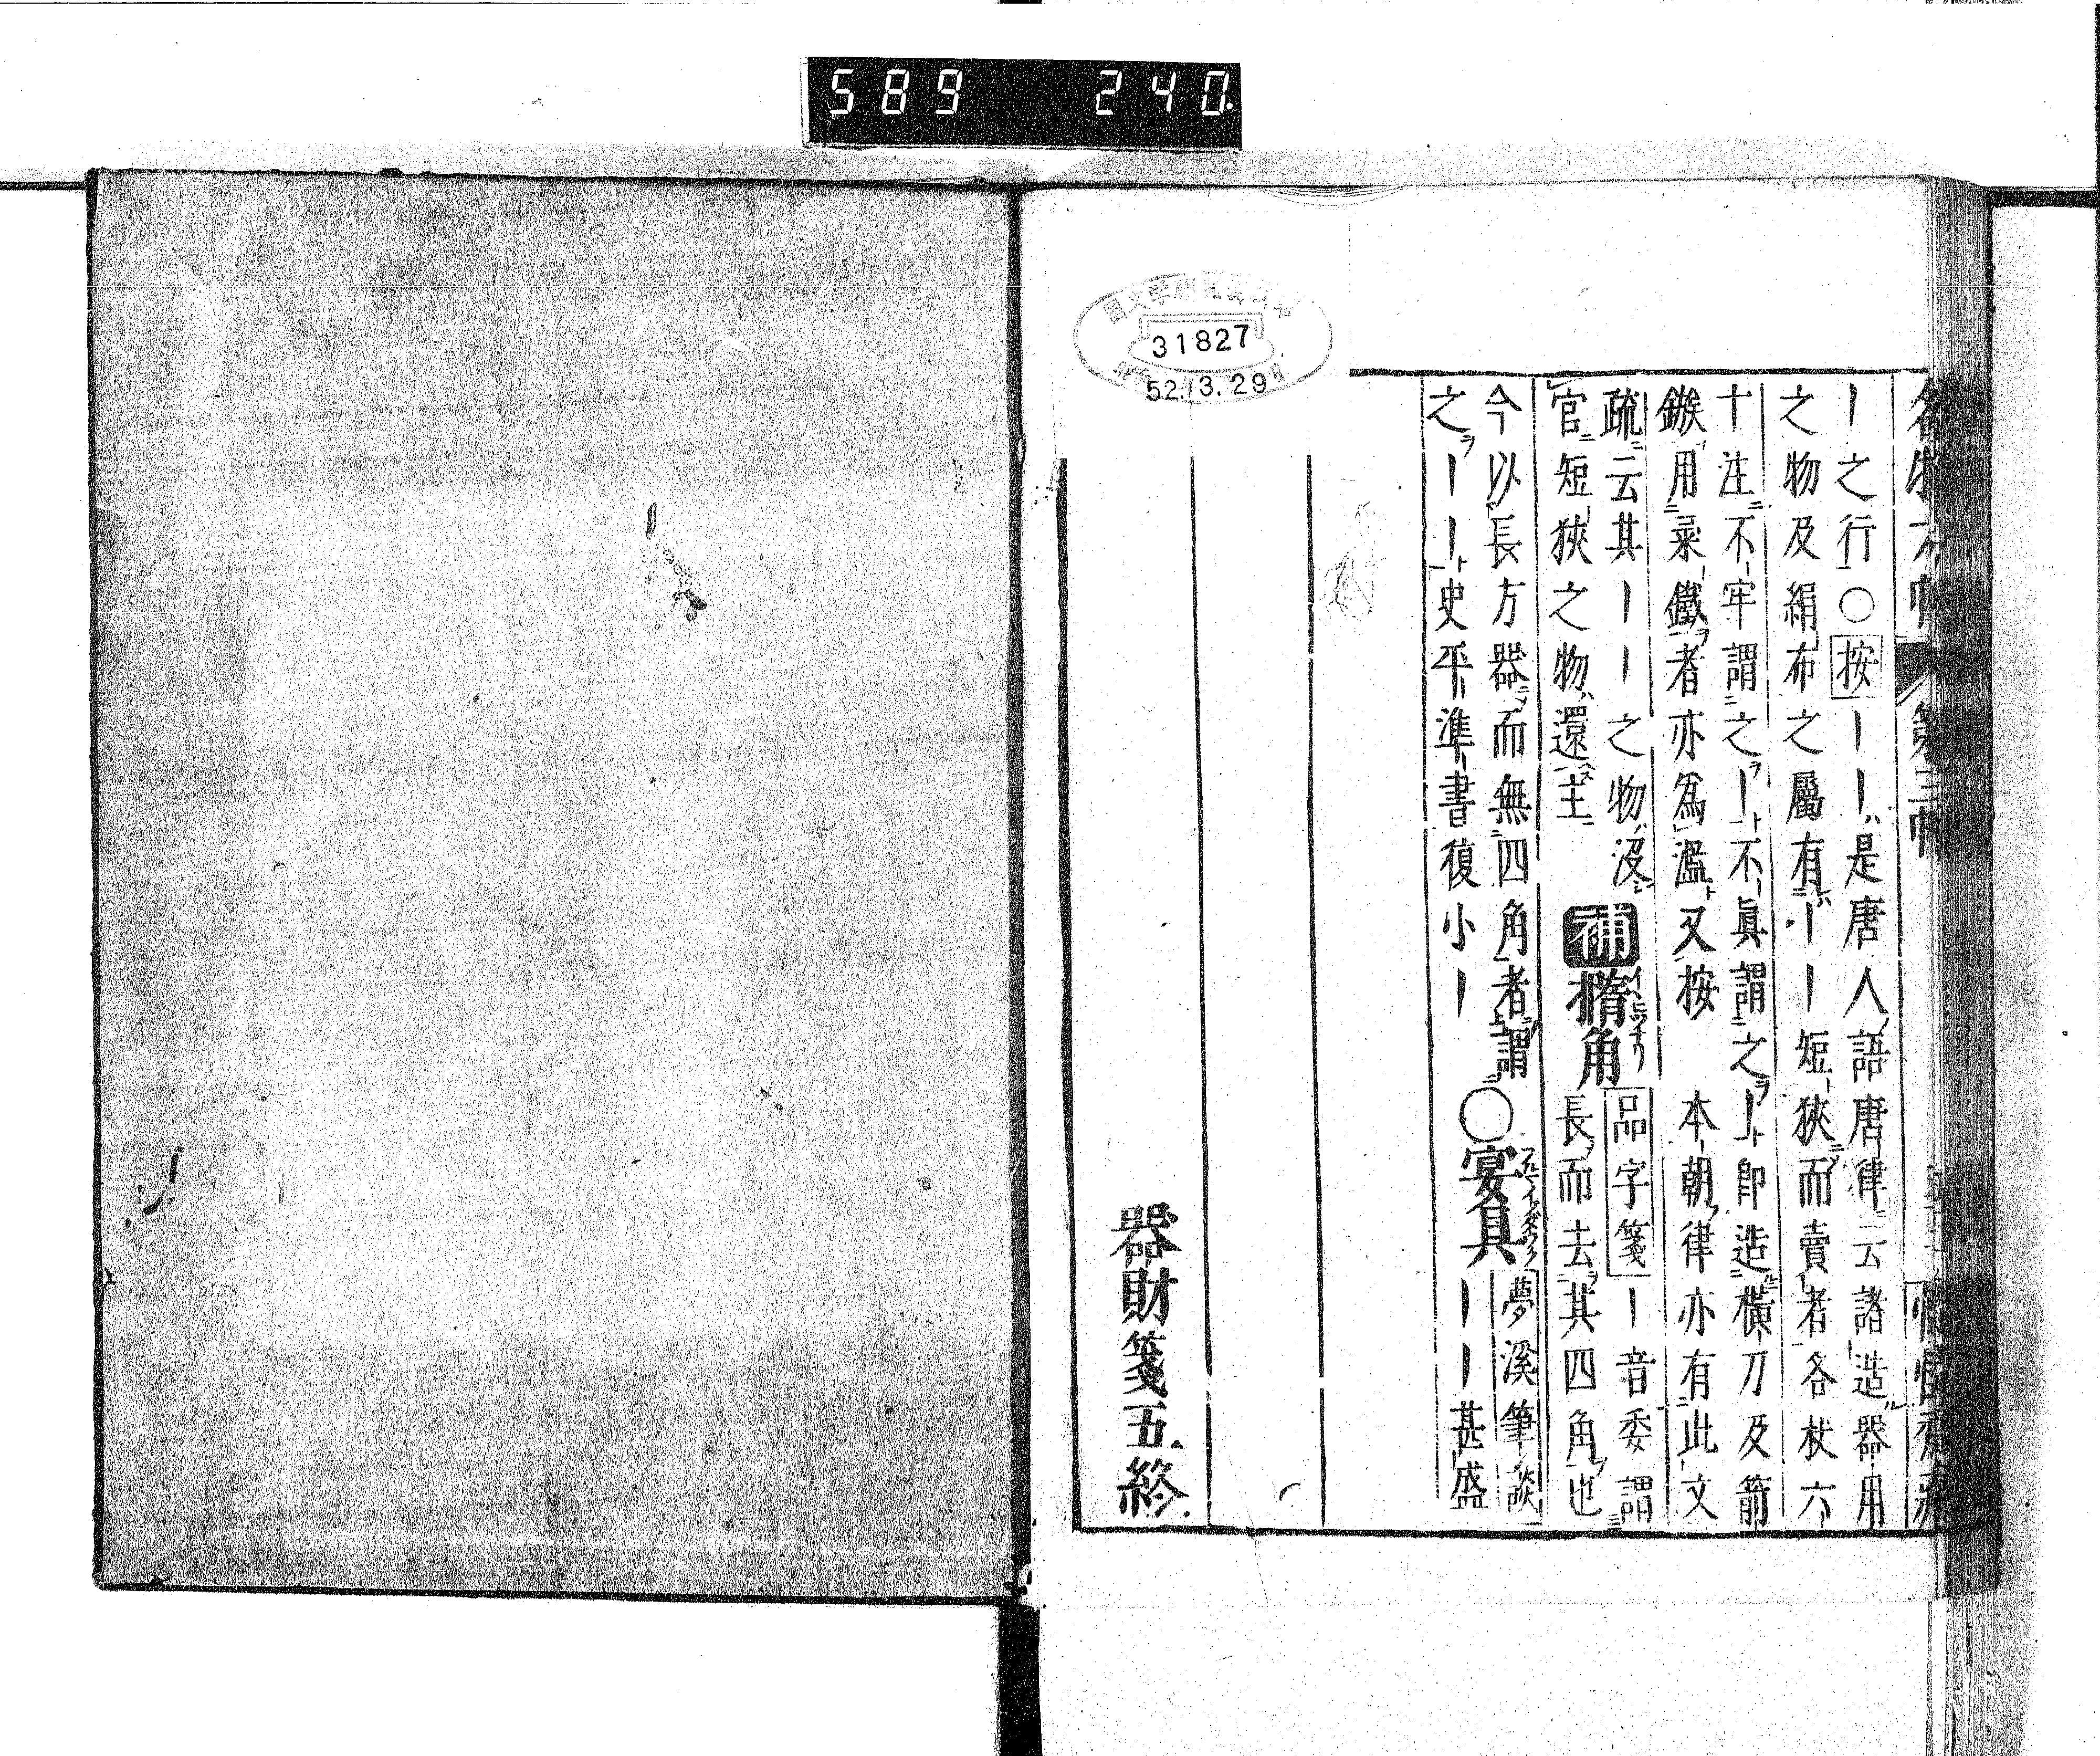 589 240
31827
52.13.29
丨之行〇按丨丨是唐人語唐律云諸造器用
之物及絹布之屬有丨丨短狹而賣者各杖六
十注不牢謂之丨不眞謂之丨卽造橫刀及箭
鏃用柔鐵者亦爲濫又按 本朝律亦有此文
疏云其丨丨之物沒
官短狹之物還主
補 楕角 品字箋丨音委謂
長而去其四角也
今以長方器而無四角者謂
之丨丨史平準書復小丨
〇宴具 夢溪筆談
丨丨甚盛
器財箋五終